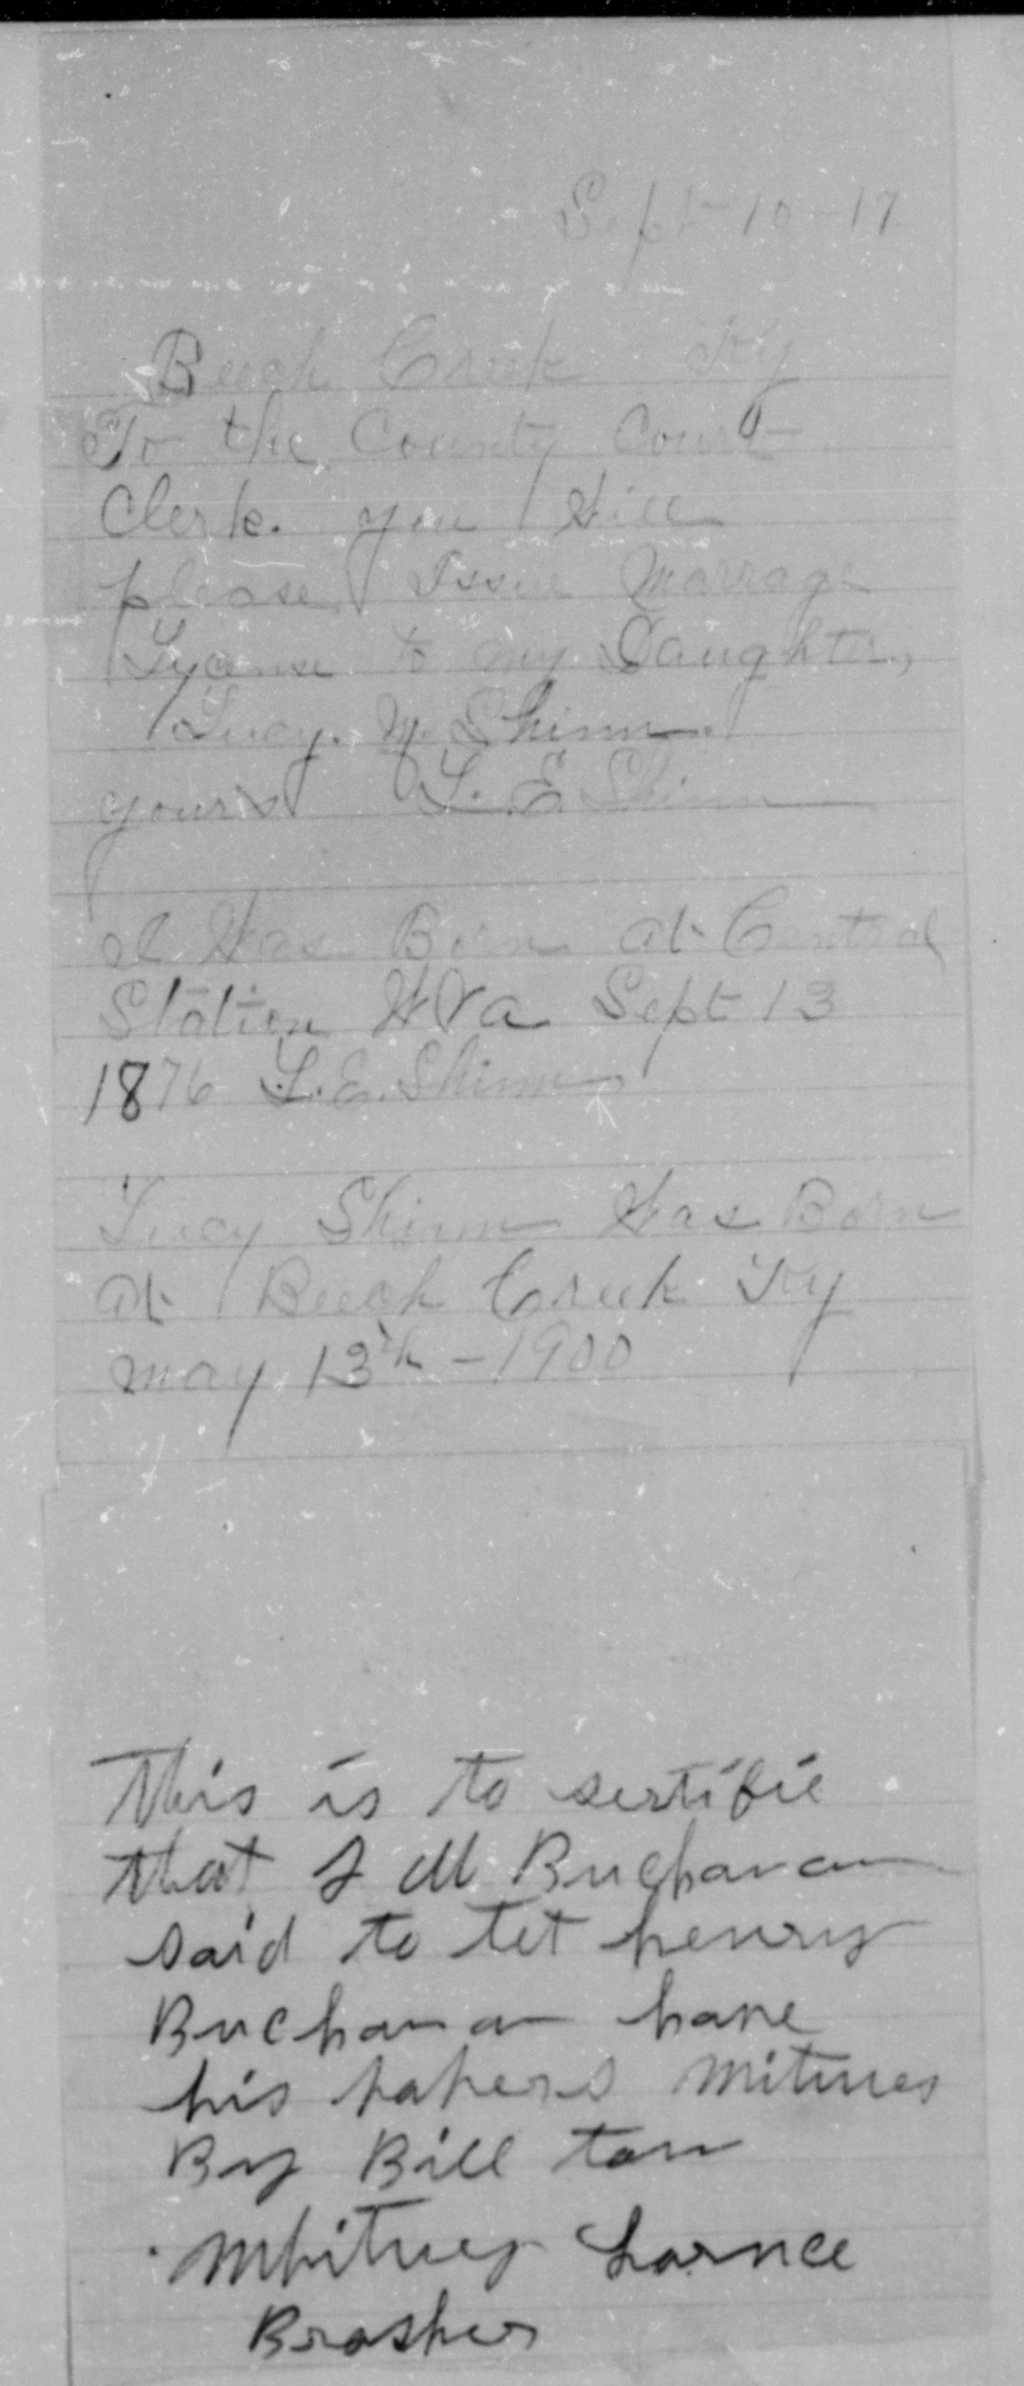 Sept-10-17
Beech Creek Ky
To the County Court
Clerk. you Will
please Issue Marrage
Lycense to my Daughter,
Lucy. M. Shinn.
yours L. E. Shinn
I Was Born at Central
Station W Va Sept 13
1876 L. E. Shinn
Lucy Shinn Was Born
at Beech Creek Ky
may 13th - 1900
This is to sertifie
that I M Buchanan
said to let henry
Buchanan have
his papers Witnes
By Bill tom
Whitney
Brasher